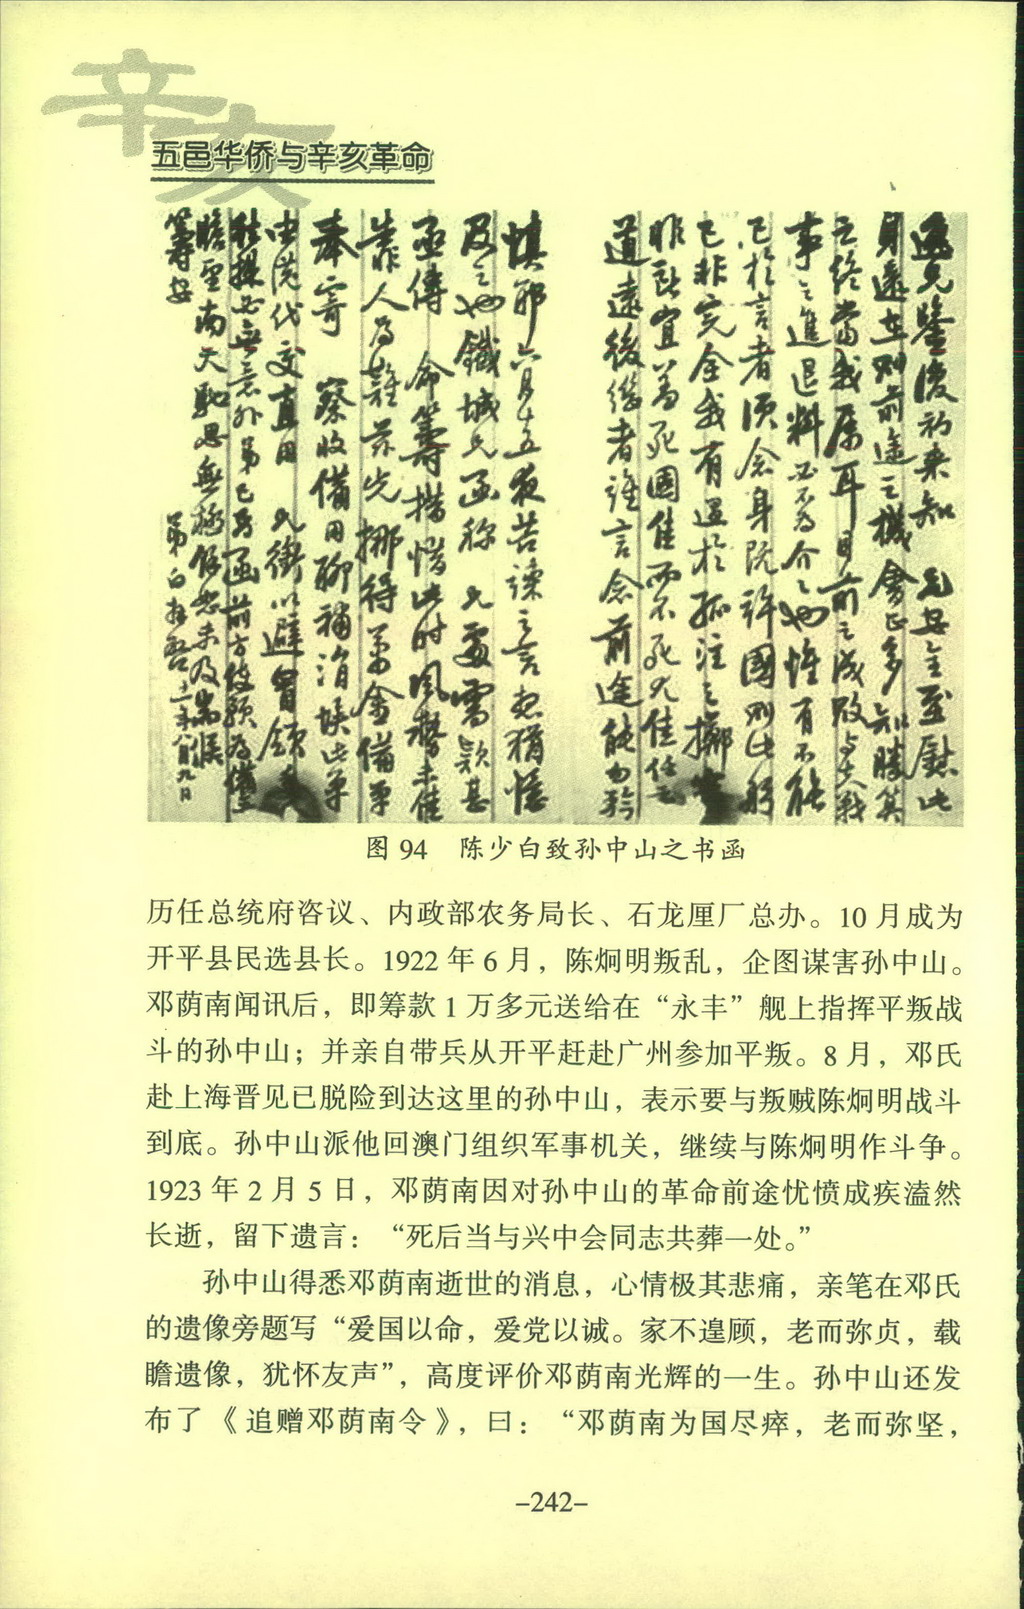 辛亥
五邑华侨与辛亥革命
逸兄鑒復初来知 兄安全至慰此
身遠在 前途之機會正多 知勝算
之終當我属耳目前之成败與大我
事之進退料必不為介介也惟有不能
已於言者須念身既許國则此躬
已非完全我有逞於孤注之擲
昨 宜 盖死國佳而不死尤佳任重
道遠後繼者誰言念前途能勿矜
慎耶六月十五夜苦諫之言想猶憶
及之也鐵城兄函称 兄處需款甚
亟傳 命籌措惜此時風聲未佳
靠人為難兹先挪得萬金備單
奉寄 察收備用聊補涓埃此單
由 代交直由 兄銜以避冒領
必無意外弟已 函前方
瞻望南天馳思無極 未及
籌安
弟白 十一年八月九日
图 94 陈少白致孙中山之书函
历任总统府咨议、内政部农务局长、石龙厘厂总办。10 月成为
开平县民选县长。1922 年 6 月，陈炯明叛乱，企图谋害孙中山。
邓荫南闻讯后，即筹款 1 万多元送给在“永丰”舰上指挥平叛战
斗的孙中山；并亲自带兵从开平赶赴广州参加平叛。8 月，邓氏
赴上海晋见已脱险到达这里的孙中山，表示要与叛贼陈炯明战斗
到底。孙中山派他回澳门组织军事机关，继续与陈炯明作斗争。
1923 年 2 月 5 日，邓荫南因对孙中山的革命前途忧愤成疾溘然
长逝，留下遗言：“死后当与兴中会同志共葬一处。”
孙中山得悉邓荫南逝世的消息，心情极其悲痛，亲笔在邓氏
的遗像旁题写“爱国以命，爱党以诚。家不遑顾，老而弥贞，载
瞻遗像，犹怀友声”，高度评价邓荫南光辉的一生。孙中山还发
布了《追赠邓荫南令》，曰：“邓荫南为国尽瘁，老而弥坚，
-242-